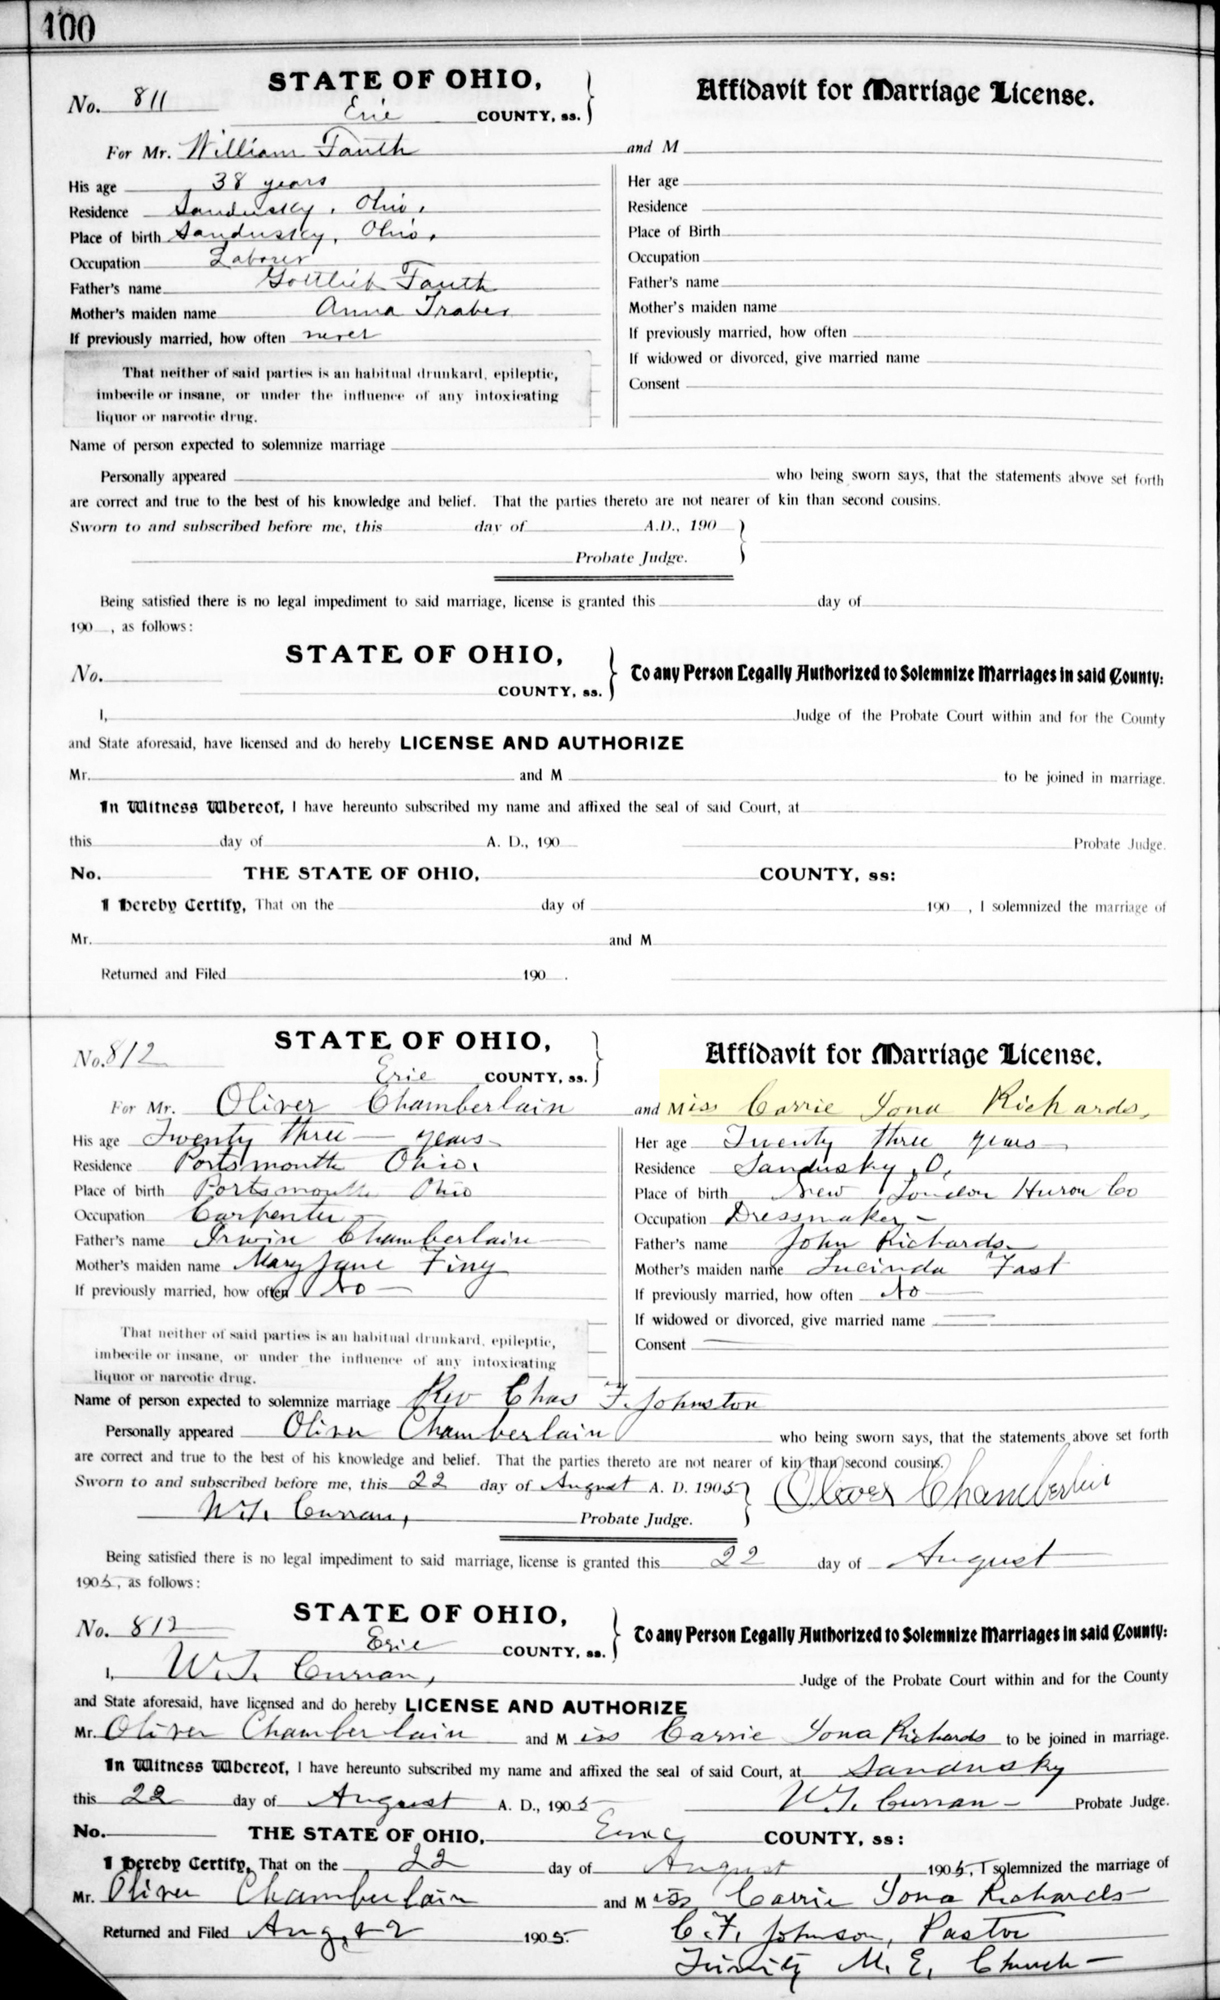 100
No. 811 STATE OF OHIO,
Erie COUNTY, ss.
Affidavit for Marriage License.
For Mr. William Fauth and M
His age 38 years Her age
Residence Sandusky, Ohio, Residence
Place of birth Sandusky, Ohio, Place of Birth
Occupation Laborer Occupation
Father's name Gottlieb Fauth Father's name
Mother's maiden name Anna Traber Mother's maiden name
If previously married, how often never If previously married, how often
If widowed or divorced, give married name
That neither of said parties is an habitual drunkard, epileptic,
Consent
imbecile or insane, or under the influence of any intoxicating
liquor or narcotic drug.
Name of person expected to solemnize marriage
Personally appeared who being sworn says, that the statements above set forth
are correct and true to the best of his knowledge and belief. That the parties thereto are not nearer of kin than second cousins.
Sworn to and subscribed before me, this day of A.D., 190
Probate Judge.
Being satisfied there is no legal impediment to said marriage, license is granted this day of
190 , as follows:
No. STATE OF OHIO,
COUNTY, ss.
To any Person Legally Authorized to Solemnize Marriages in said County:
I, Judge of the Probate Court within and for the County
and State aforesaid, have licensed and do hereby LICENSE AND AUTHORIZE
Mr. and M to be joined in marriage.
In Witness Whereof, I have hereunto subscribed my name and affixed the seal of said Court, at
this day of A. D., 190 Probate Judge.
No. THE STATE OF OHIO, COUNTY, ss:
I Hereby Certify, That on the day of 190 , I solemnized the marriage of
Mr. and M
Returned and Filed 190 .
No. 812 STATE OF OHIO,
Erie COUNTY, ss.
Affidavit for Marriage License.
For Mr. Oliver Chamberlain and Miss Carrie Iona Richards,
His age Twenty three years Her age Twenty three years
Residence Portsmouth Ohio. Residence Sandusky, O,
Place of birth Portsmouth Ohio Place of birth New London Huron Co
Occupation Carpenter Occupation Dressmaker
Father's name Irwin Chamberlain Father's name John Richards
Mother's maiden name Mary Jane Finy Mother's maiden name Lucinda Fast
If previously married, how often No If previously married, how often No
If widowed or divorced, give married name
That neither of said parties is an habitual drunkard, epileptic,
Consent
imbecile or insane, or under the influence of any intoxicating
liquor or narcotic drug.
Name of person expected to solemnize marriage Rev Chas F. Johnston
Personally appeared Oliver Chamberlain who being sworn says, that the statements above set forth
are correct and true to the best of his knowledge and belief. That the parties thereto are not nearer of kin than second cousins.
Sworn to and subscribed before me, this 22 day of August A. D. 1905 Oliver Chamberlin
W.T. Curran, Probate Judge.
Being satisfied there is no legal impediment to said marriage, license is granted this 22 day of August
1905, as follows:
No. 812 STATE OF OHIO,
Erie COUNTY, ss.
To any Person Legally Authorized to Solemnize Marriages in said County:
I, W.T. Curran, Judge of the Probate Court within and for the County
and State aforesaid, have licensed and do hereby LICENSE AND AUTHORIZE
Mr. Oliver Chamberlain and Miss Carrie Iona Richards to be joined in marriage.
In Witness Whereof, I have hereunto subscribed my name and affixed the seal of said Court, at Sandusky
this 22 day of August A. D., 1905 W.T. Curran Probate Judge.
No. THE STATE OF OHIO, COUNTY, ss:
I Hereby Certify, That on the 22 day of August 1905, I solemnized the marriage of
Mr. Oliver Chamberlain and Miss Carrie Iona Richards
Returned and Filed Aug, 22 1905. C. F. Johnson, Pastor
Trinity M. E. Church